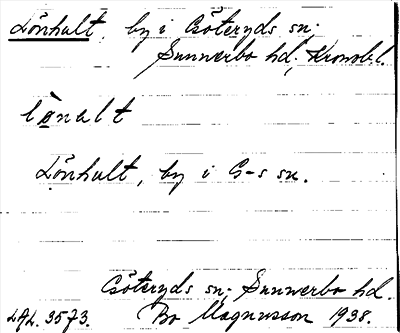 Lönhult, by i Göteryds sn;
Sunnerbo hd; Kronob.l.
lønalt
Lönhult, by i G-s sn.
Göteryds sn; Sunnerbo hd.
LAL. 3573. Bo Magnusson 1938.